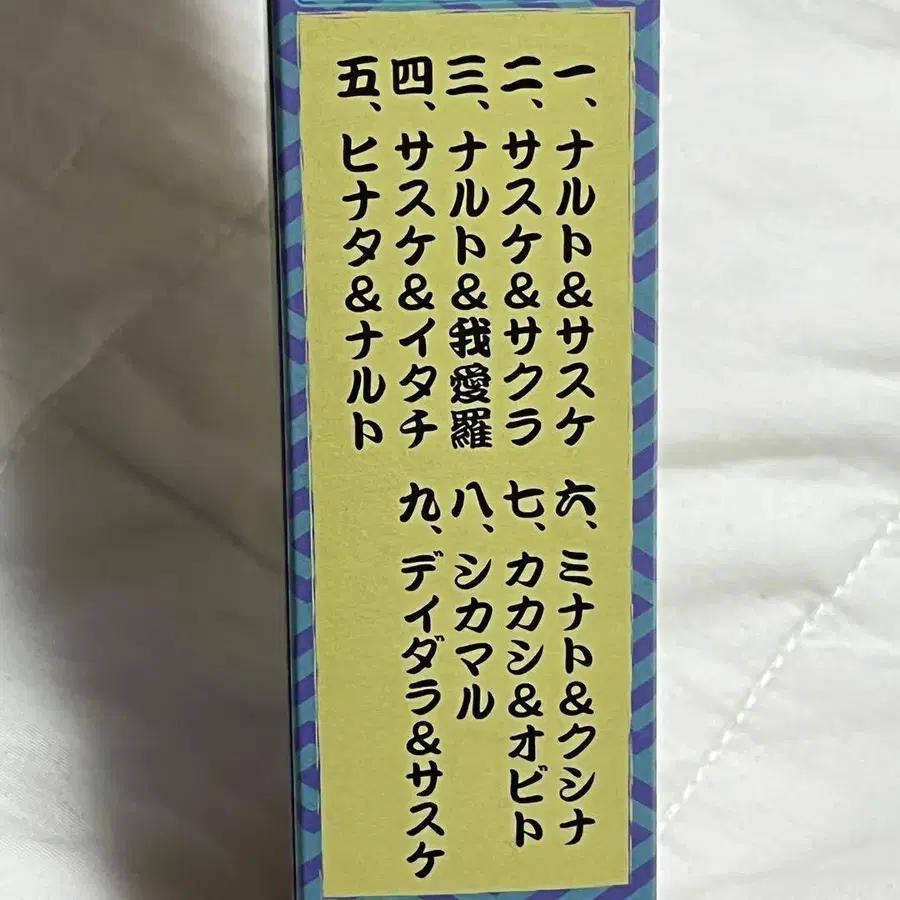 一、ナルト&サスケ
二、サスケ&サクラ
三、ナルト&我愛羅
四、サスケ&イタチ
五、ヒナタ&ナルト
六、ミナト&クシナ
七、カカシ&オビト
八、シカマル
九、デイダラ&サスケ